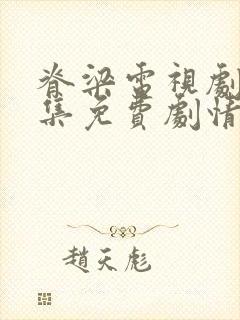 脊梁電視劇
集免費劇情
趙天彪